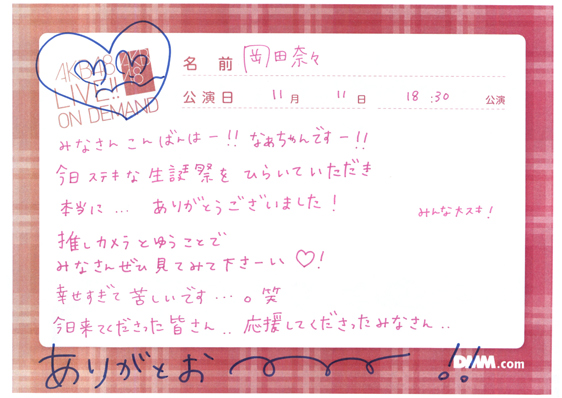 AKB48
LIVE!!
ON DEMAND
名 前 岡田奈々
公演日 11月 11日 18:30 公演
みなさんこんばんはー!! なぁちゃんですー!!
今日ステキな生誕祭をひらいていただき
本当に… ありがとうございました!
みんな大スキ!
推しカメラとゆうことで
みなさんぜひ見てみて下さーい♡!
幸せすぎて苦しいです…。笑
今日来てくださった皆さん.. 応援してくださったみなさん..
ありがとお 〜〜 !!
DMM.com